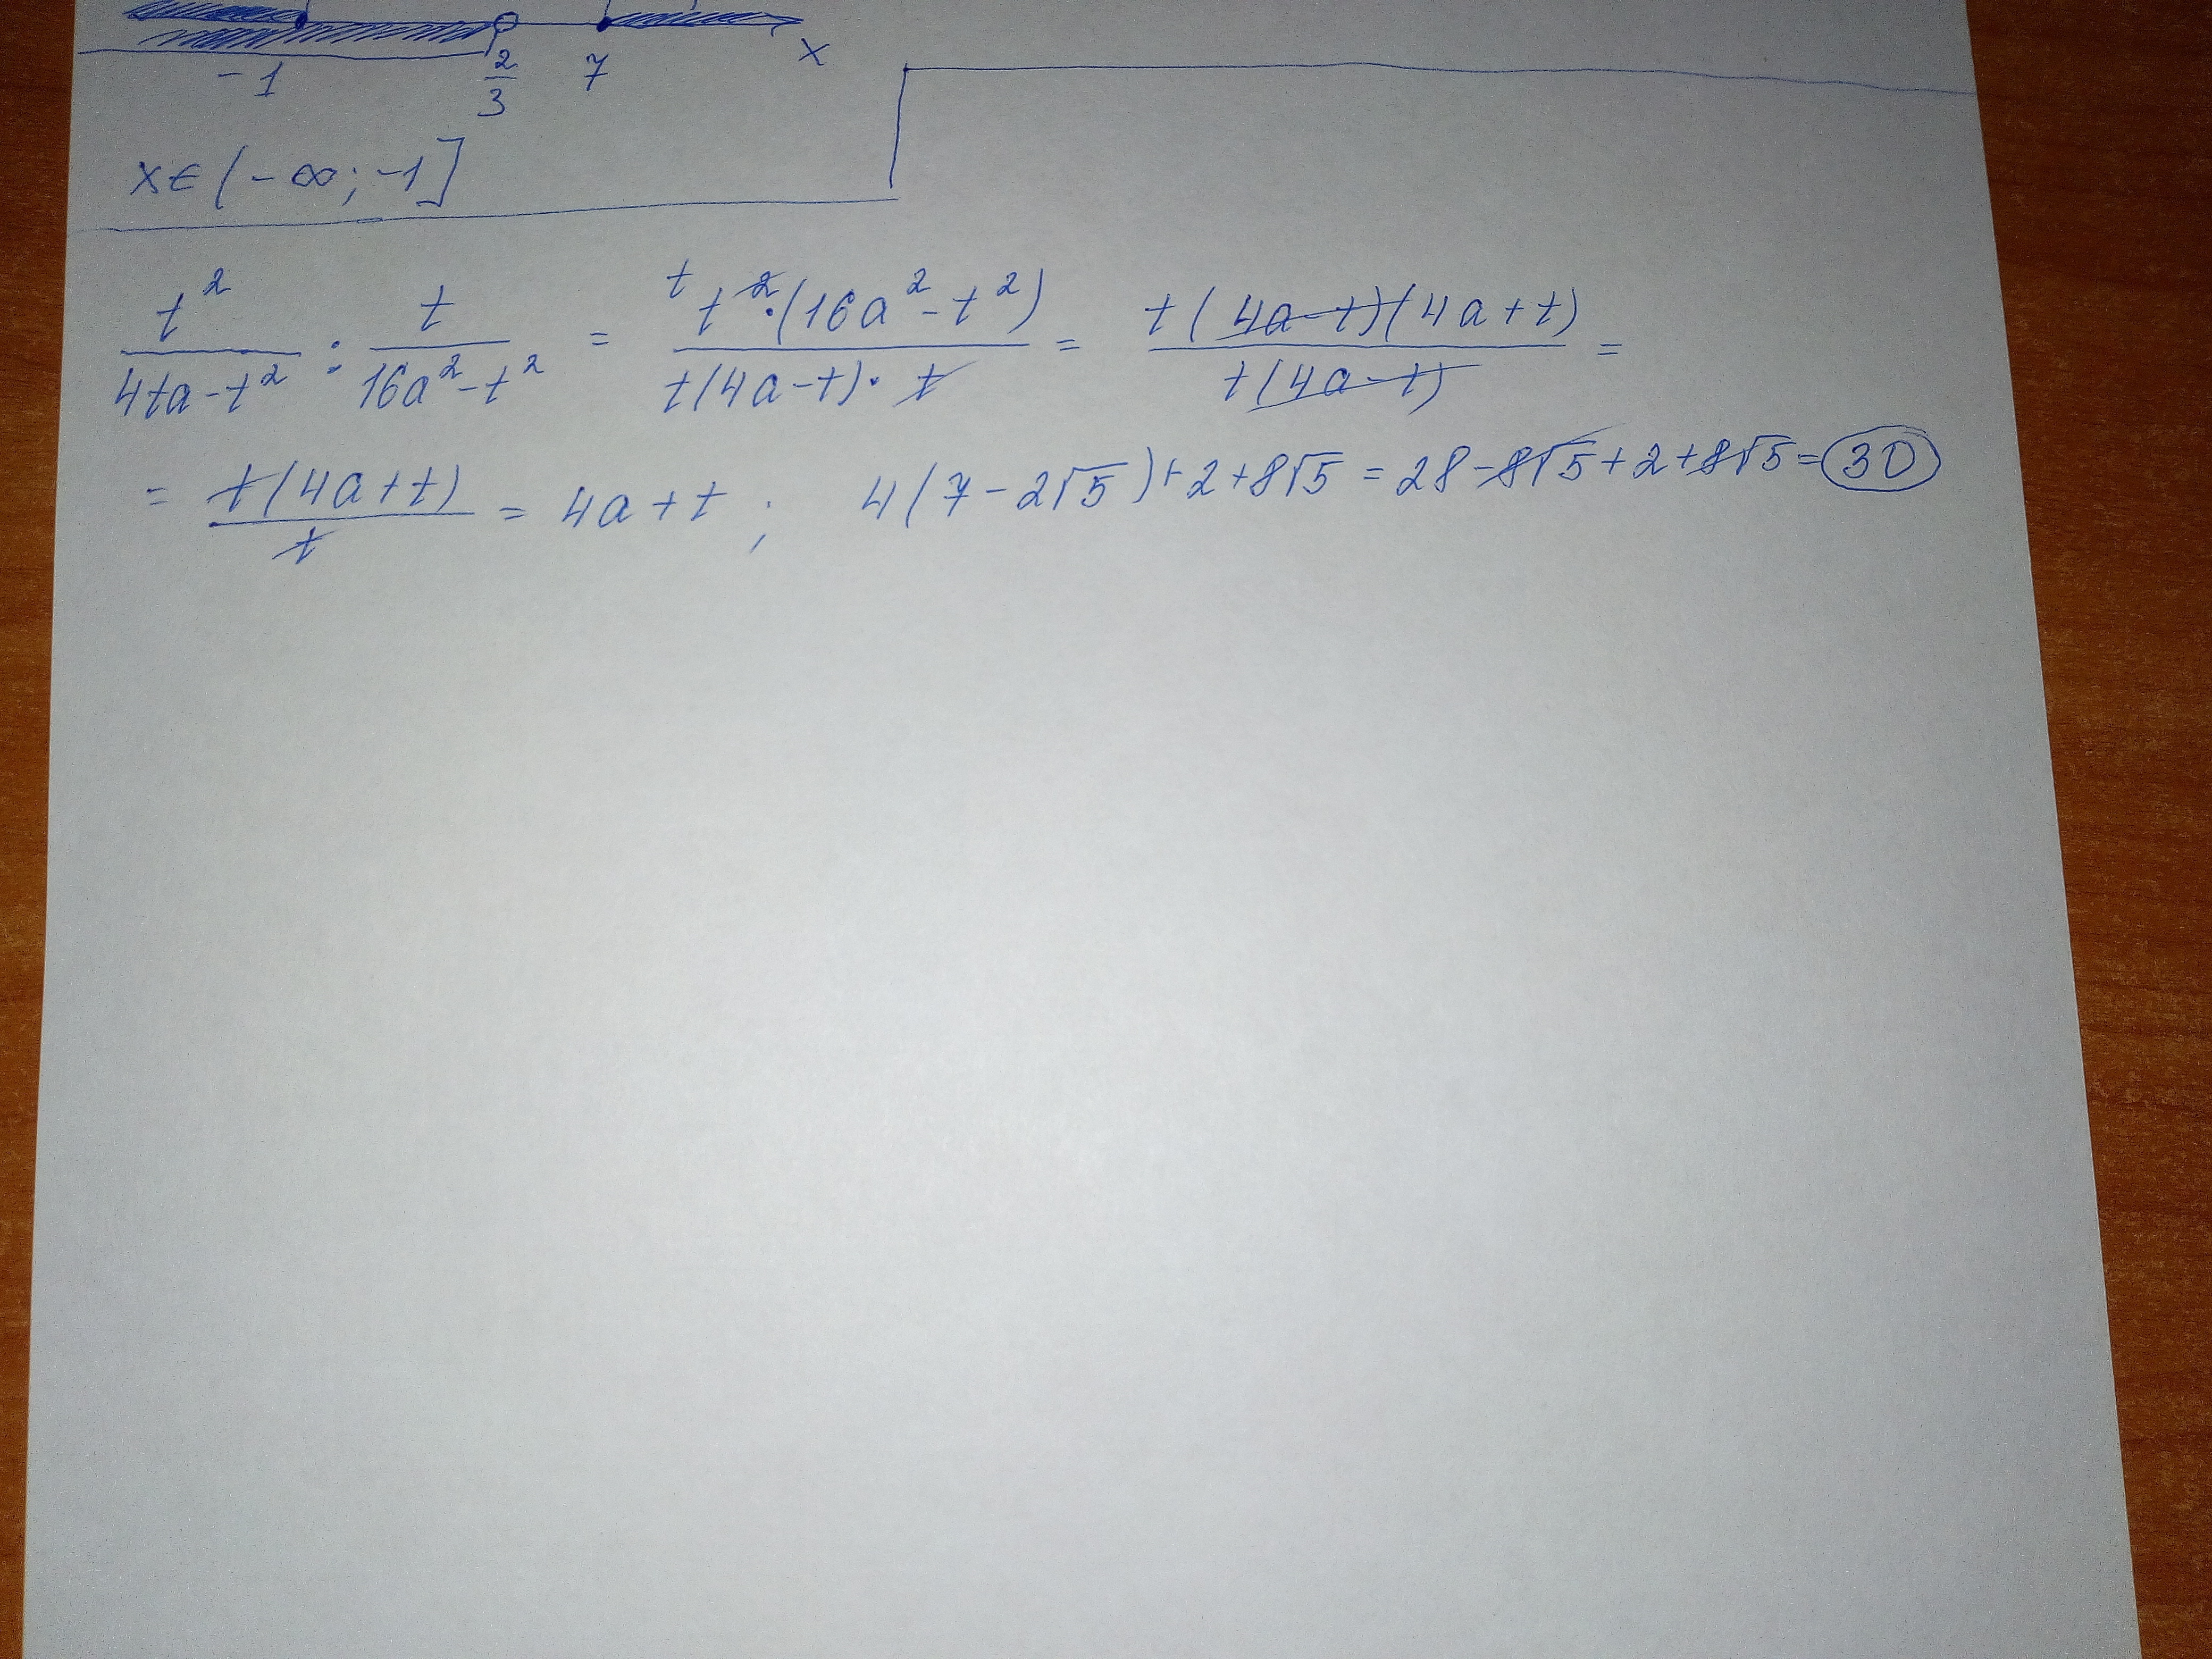 -1 2/3 7 x
x∈(-∞; -1]
t²/(4ta-t²) : t/(16a²-t²) = t t²·(16a²-t²)/(t(4a-t)·t) = t(4a-t)(4a+t)/(t(4a-t)) =
= t(4a+t)/t = 4a+t ; 4(7-2√5)+2+8√5 = 28-8√5+2+8√5=30